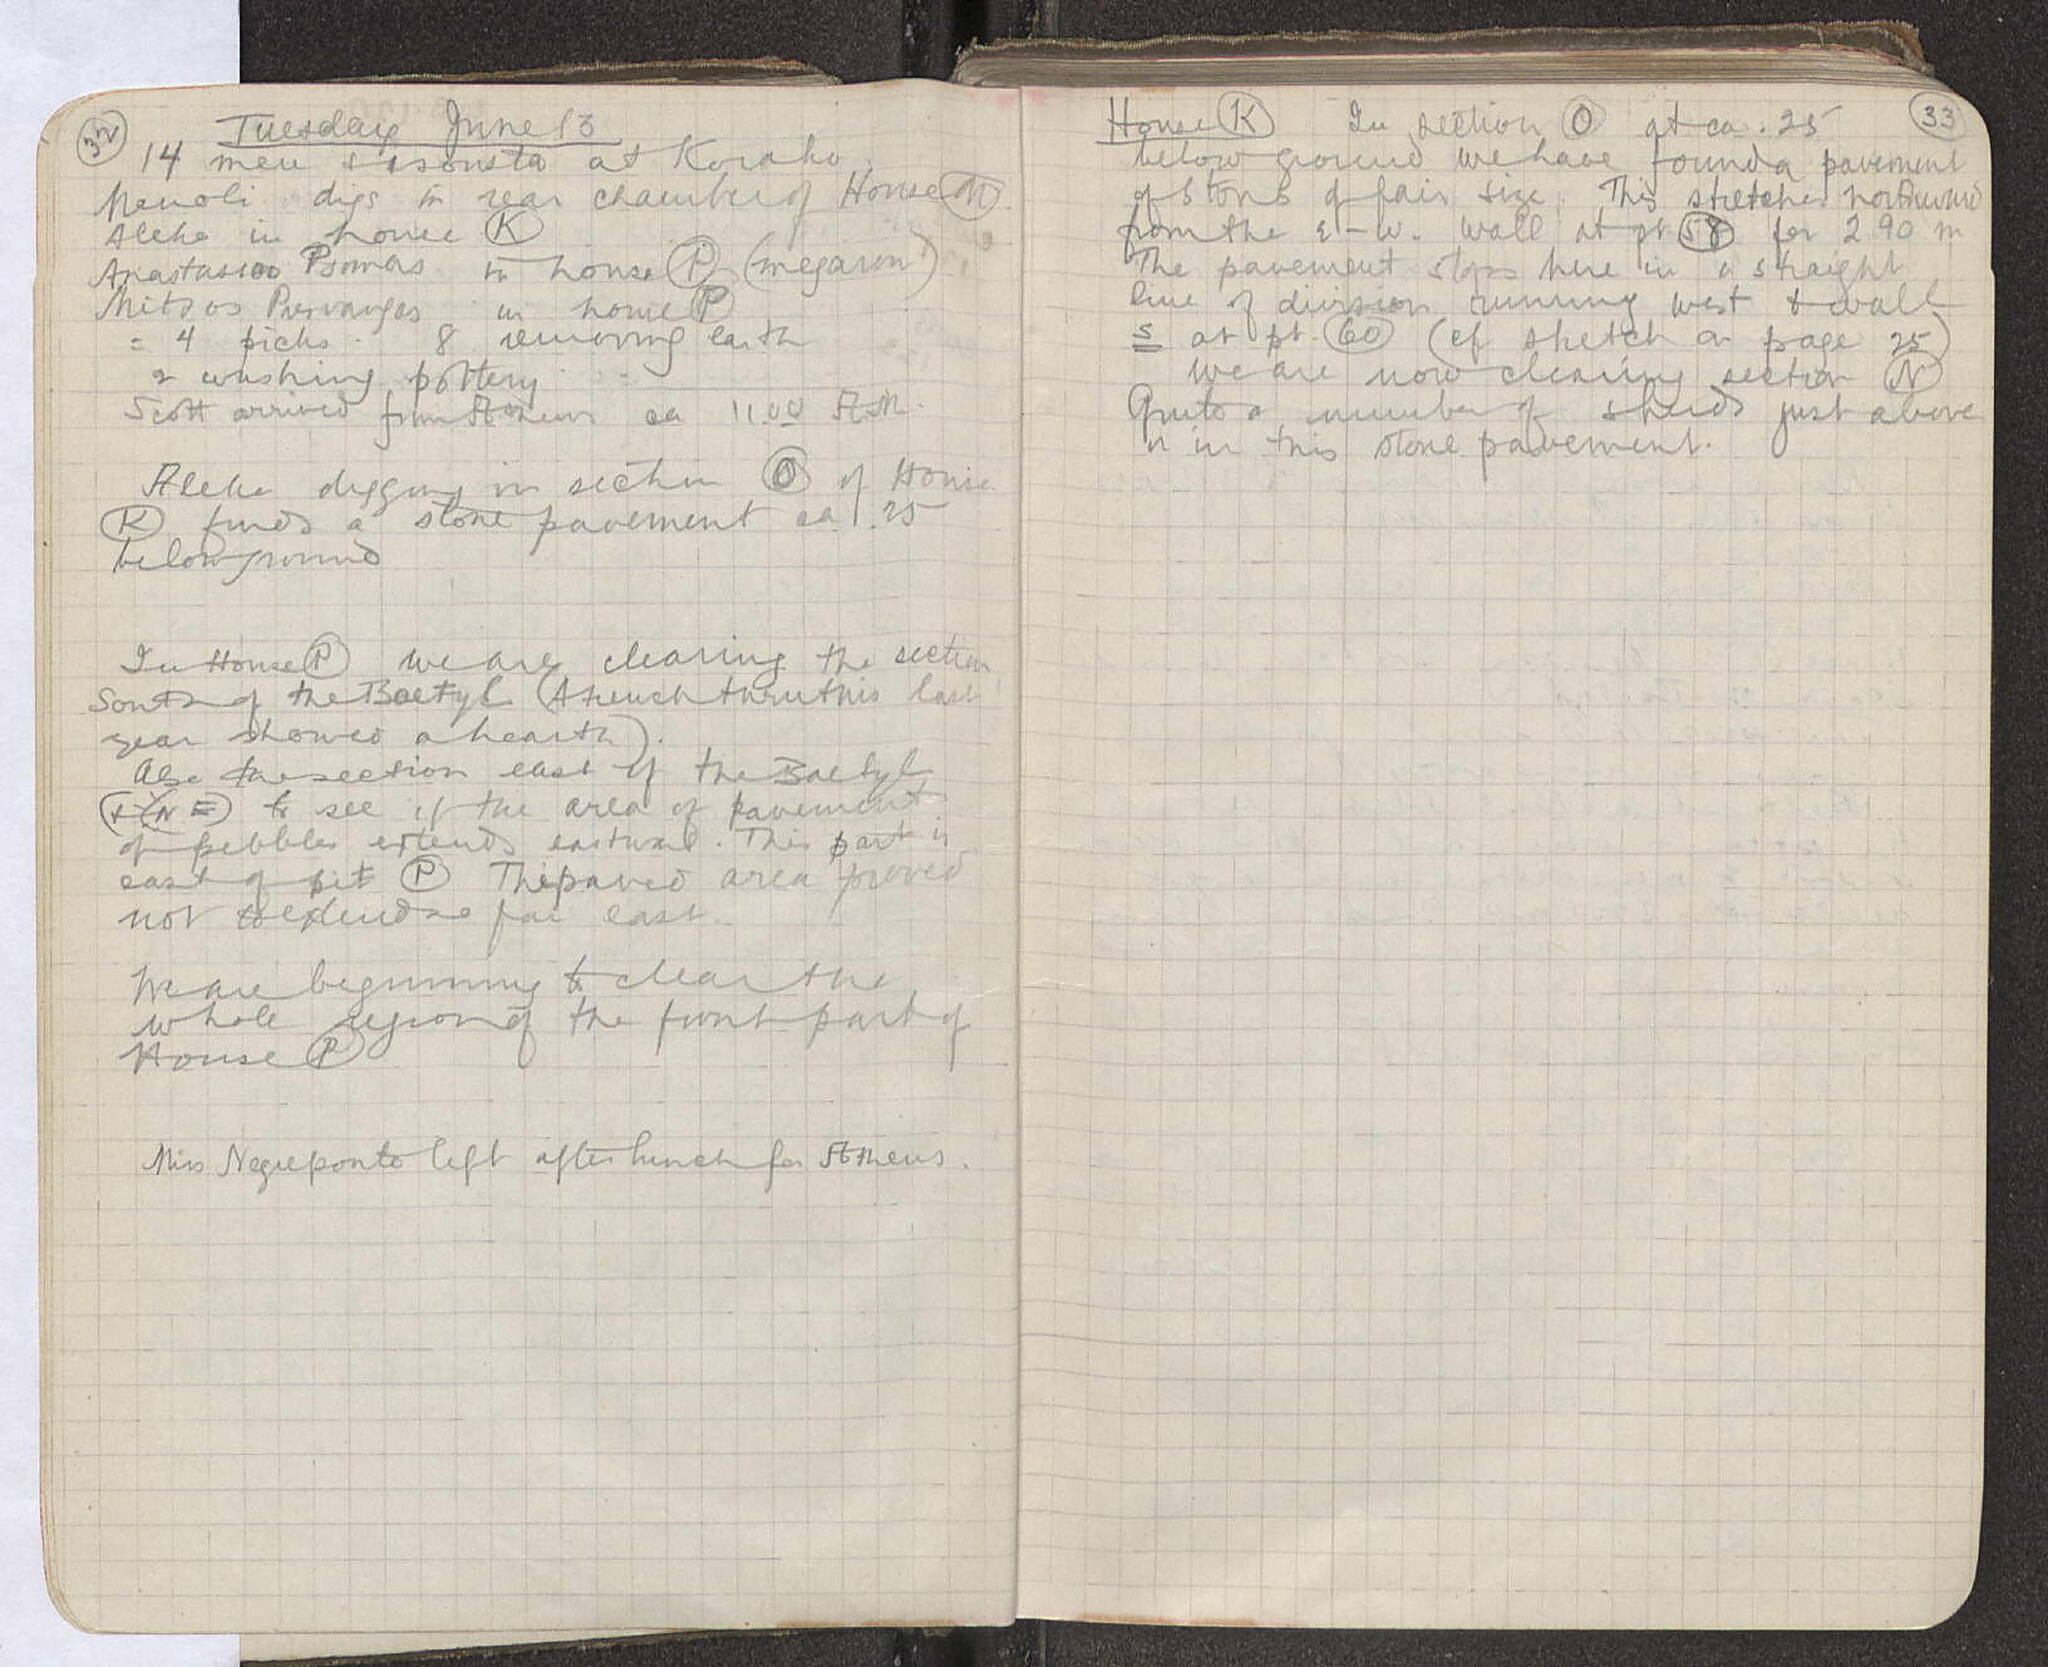 32
Tuesday June 13
14 men & sousta at Korakou
Manoli digs in rear chamber of House M
Aleko in house K
Anastasios Psomas in house P (megaron)
Mitsos in house P
= 4 picks. 8 removing earth
2 washing pottery
Scott arrived from Athens ca 11.00 A.M.
Aleko digging in section O of House
K finds a stone pavement ca .25
below ground
In House P we are clearing the section
South of the Baetyl (A trench thru this last
year showed a hearth).
Also the section east of the Baetyl
to see if the area of pavement
of pebbles extends eastward. This part is
east of pit P The paved area proved
not to extend far east.
We are beginning to clear the
whole region of the front part of
House P
Miss Negreponte left after lunch for Athens.
33
House K In section O at ca. 25
below ground we have found a pavement
of stones of fair size. This stretches northward
from the E-W. wall at pt 58 for 2 90 m
The pavement stops here in a straight
line of division running west to wall
s at pt. 60 (cf sketch on page 25)
We are now clearing section N
Quite a number of sherds just above
or in this stone pavement.